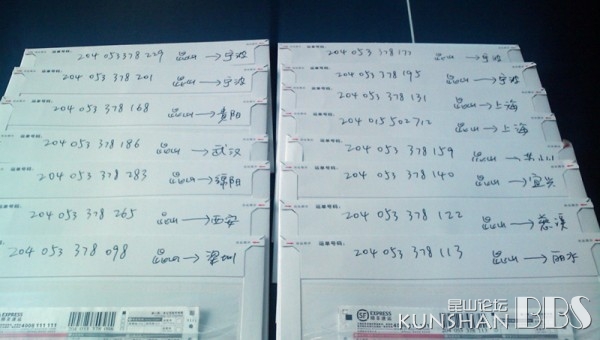 运单号码: 204 053378 229 昆山→宁波
204 053 378 201 昆山→宁波
运单号码: 204 053 378 168 昆山→贵阳
204 053 378 186 昆山→武汉
204 053 378 283 昆山→绵阳
204 053 378 265 昆山→西安
运单号码: 204 053 378 098 昆山→深圳
EXPRESS
运单号码: 204 053 378 177 昆山→宁波
204 053 378 195 昆山→宁波
204 053 378 131 昆山→上海
204 015 502 712 昆山→上海
204 053 378 159
204 053 378 140 昆山→宜兴
204 053 378 122 昆山→慈溪
运单号码: 204 053 378 113 昆山→丽水
SF EXPRESS
昆山论坛
KUNSHAN BBS